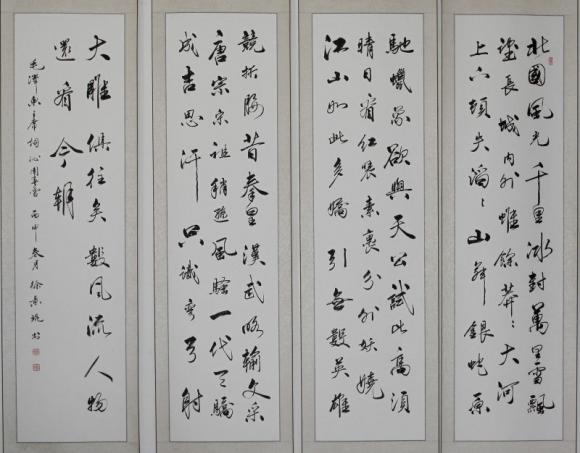 北國風光千里冰封萬里雪飄
望長城内外惟餘莽々大河
上下頓失滔々山舞銀蛇原
馳蠟象欲與天公試比高須
晴日看紅裝素裹分外妖嬈
江山如此多嬌引無數英雄
競折腰昔秦皇漢武略輸文采
唐宗宋祖稍遜風騷一代天驕
成吉思汗只識彎弓射
大雕俱往矣數風流人物
還看今朝
毛澤東主席詞沁園春雪丙申春月徐